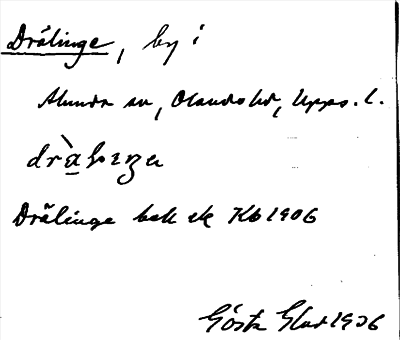 Drälinge, by i
Alunda sn, Olands hd, Upps. l.
Drälinge bek ek Kb 1906
Gösta Glad 1906